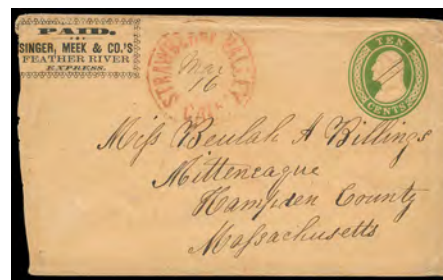 PAID.
SINGER, MEEK & CO.'S
FEATHER RIVER
EXPRESS.
STRAWBERRY VALLEY
Mar
16
CAL.
TEN
CENTS
Miss Beulah A Billings
Mitteneague
Hampden County
Massachusetts